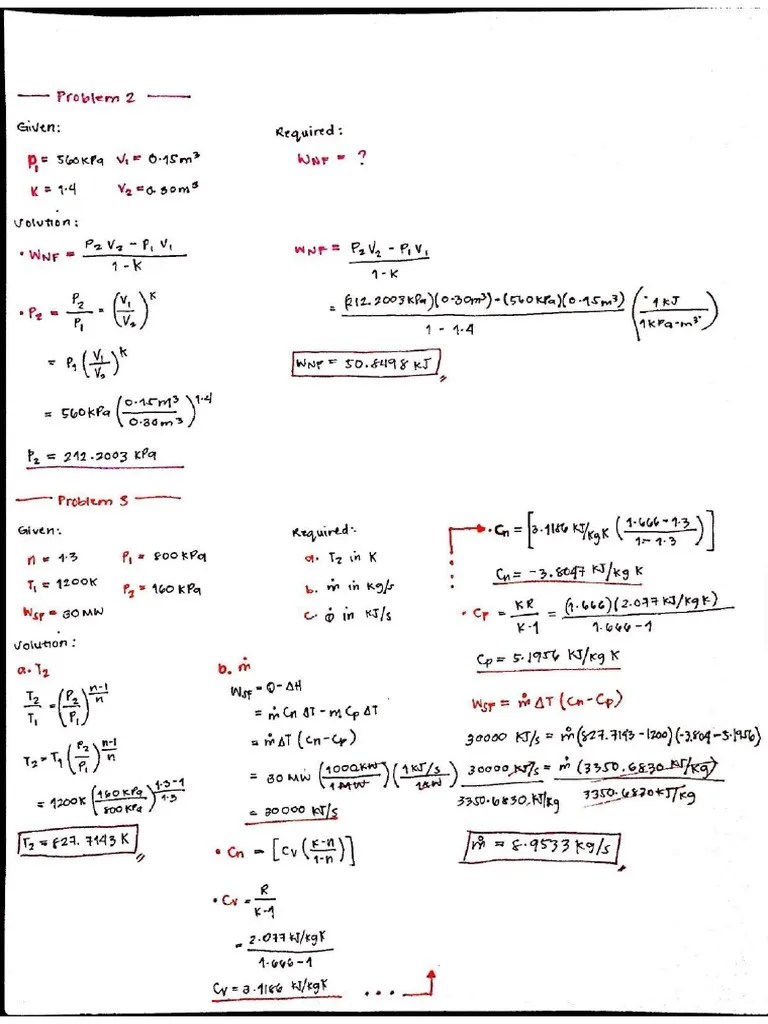 Problem 2
Given:
P₁ = 560 KPa V₁ = 0.15m³
K = 1.4 V₂ = 0.30m³
Required:
W_NF = ?
Solution:
• W_NF = (P₂V₂ - P₁V₁) / (1 - K)
• P₂ = P₂/P₁ = (V₁/V₂)^K
= P₁ (V₁/V₂)^K
= 560 KPa (0.15m³ / 0.30m³)^1.4
P₂ = 212.2003 KPa
W_NF = (P₂V₂ - P₁V₁) / (1 - K)
= ((212.2003 KPa)(0.30m³) - (560 KPa)(0.15m³)) / (1 - 1.4) (1 KJ / 1 KPa-m³)
W_NF = 50.8498 KJ
Problem 3
Given:
n = 1.3 P₁ = 800 KPa
T₁ = 1200K P₂ = 160 KPa
W_SF = 30 MW
Required:
a. T₂ in K
b. ṁ in kg/s
c. Q̇ in KJ/s
Solution:
a. T₂
T₂/T₁ = (P₂/P₁)^((n-1)/n)
T₂ = T₁ (P₂/P₁)^((n-1)/n)
= 1200K (160 KPa / 800 KPa)^((1.3-1)/1.3)
T₂ = 827.7143 K
b. ṁ
W_SF = Q - ΔH
= ṁ Cn ΔT - ṁ Cp ΔT
= ṁ ΔT (Cn - Cp)
= 30 MW (1000KW / 1MW) (1 KJ/s / 1KW)
= 30000 KJ/s
• Cn = [Cv ((K-n)/(1-n))]
• Cv = R / (K-1)
= 2.077 KJ/kgK / (1.666-1)
Cv = 3.1186 KJ/kgK ...
• Cn = [3.1186 KJ/kgK ((1.666-1.3)/(1-1.3))]
Cn = -3.8047 KJ/kg K
• Cp = KR/(K-1) = (1.666)(2.077 KJ/kg K) / (1.666-1)
Cp = 5.1956 KJ/kg K
W_SF = ṁ ΔT (Cn - Cp)
30000 KJ/s = ṁ (827.7143 - 1200)(-3.804 - 5.1956)
30000 KJ/s / 3350.6830 KJ/kg = ṁ (3350.6830 KJ/kg) / 3350.6830 KJ/kg
ṁ = 8.9533 kg/s